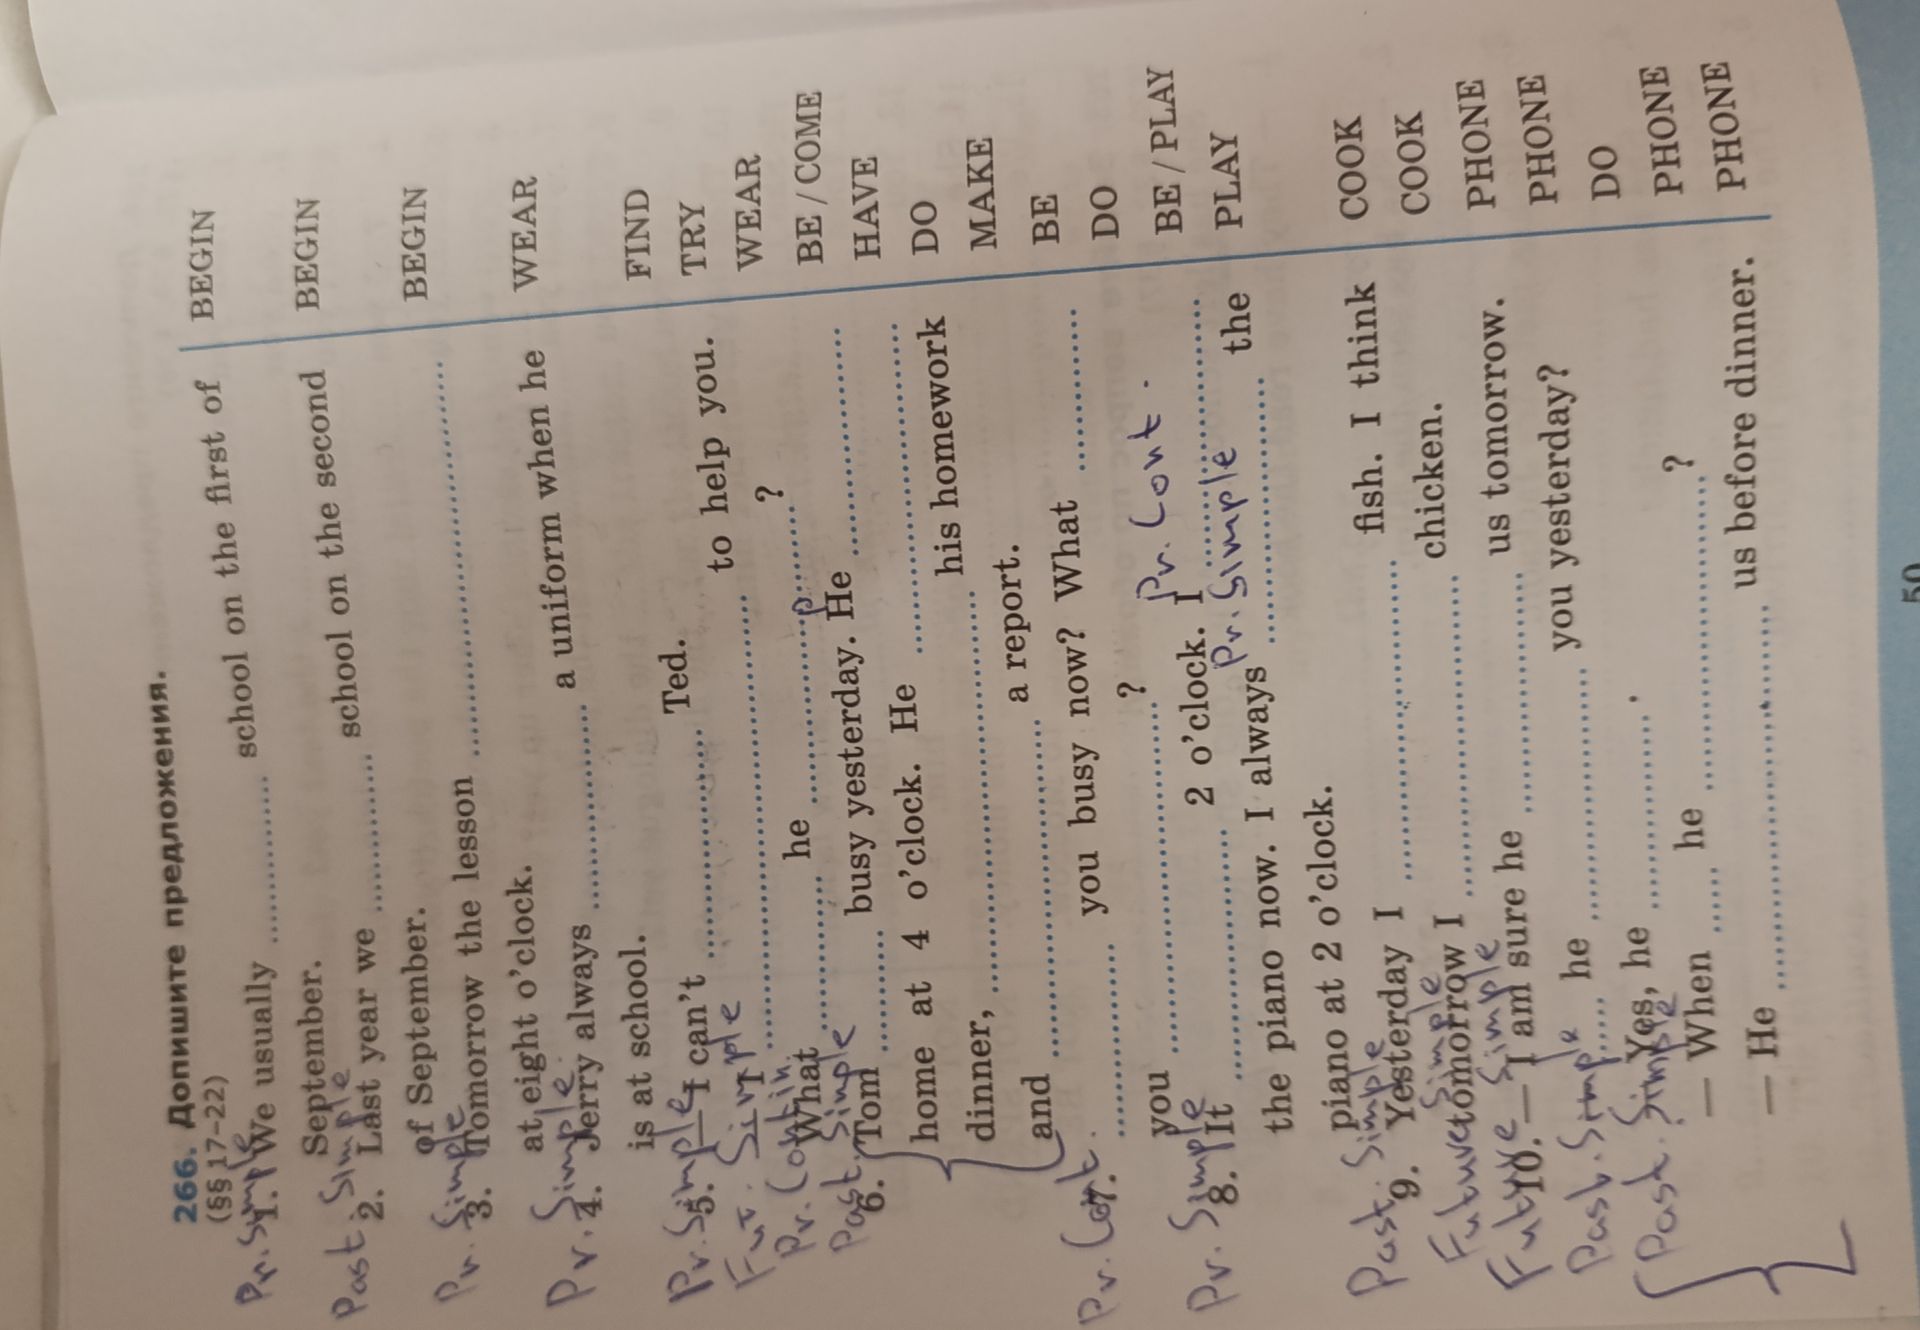 266. Допишите предложения.
(§§ 17–22)
Pr. Simple
1. We usually .............. school on the first of BEGIN
September.
Past. Simple
2. Last year we .............. school on the second BEGIN
of September.
Pr. Simple
3. Tomorrow the lesson .............................. BEGIN
at eight o'clock.
Pr. Simple
4. Jerry always ................ a uniform when he WEAR
is at school.
Pr. Simple
5. — I can't .................. Ted. FIND
Fut. Simple
— I .................................. to help you. TRY
Pr. Contin.
What ............ he .........................? WEAR
Past. Simple
6. Tom .......... busy yesterday. He .................. BE / COME
home at 4 o'clock. He .......................... HAVE
dinner, ............................... his homework DO
and .......................... a report. MAKE
Pr. Cont.
7. ............... you busy now? What ............. BE
you ...........................? DO
Pr. Simple
Pr. Cont.
8. It .................... 2 o'clock. I ....................... BE / PLAY
Pr. Simple
the piano now. I always ..................... the PLAY
piano at 2 o'clock.
Past. Simple
9. Yesterday I ......................... fish. I think COOK
Future Simple
tomorrow I ......................... chicken. COOK
Future Simple
10. — I am sure he ................... us tomorrow. PHONE
Past. Simple
— ..... he .................... you yesterday? PHONE
Past. Simple
— Yes, he ................ . DO
— When ..... he .........................? PHONE
— He .............................. us before dinner. PHONE